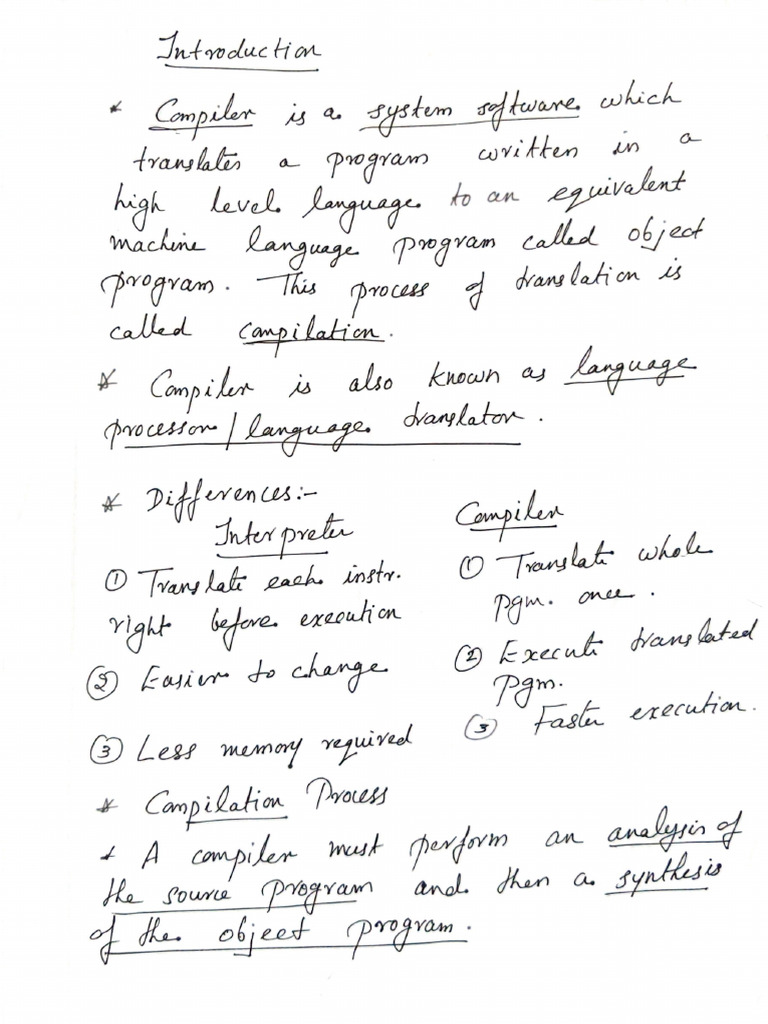 Introduction
* Compiler is a system software which
translates a program written in a
high level language to an equivalent
machine language program called object
program. This process of translation is
called compilation.
* Compiler is also known as language
processor/language translator.
* Differences:-
Interpreter Compiler
① Translate each instr. ① Translate whole
right before execution pgm. once.
② Easier to change ② Execute translated
pgm.
③ Less memory required ③ Faster execution.
* Compilation Process
* A compiler must perform an analysis of
the source program and then a synthesis
of the object program.